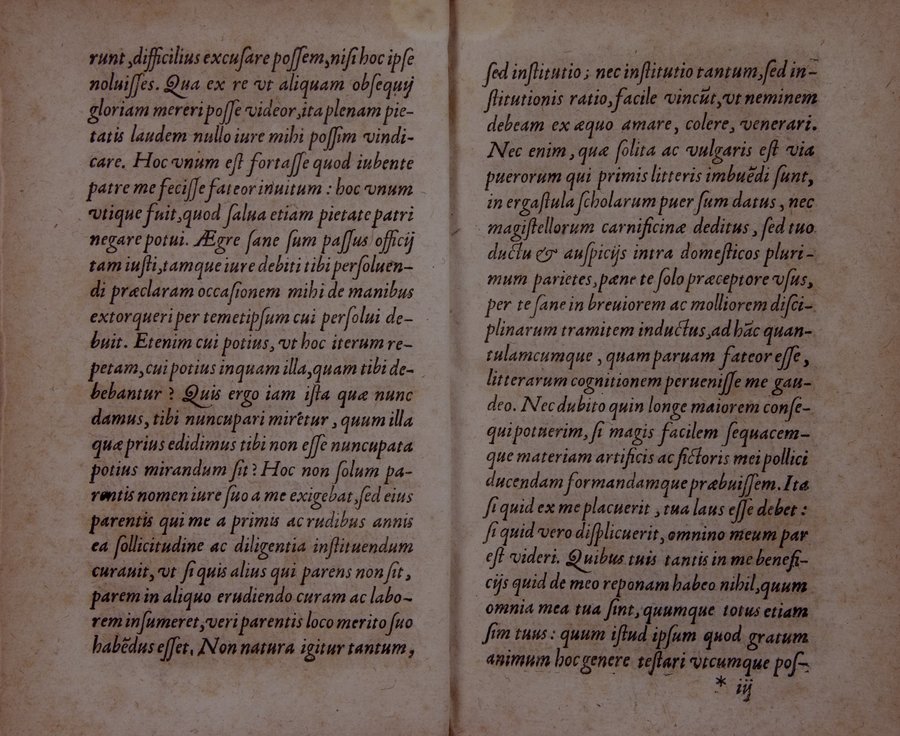 runt, difficilius excuſare poſſem, niſi hoc ipſe
noluiſſes. Qua ex re vt aliquam obſequij
gloriam mereri poſſe videor, ita plenam pie-
tatis laudem nullo iure mihi poſſim vindi-
care. Hoc vnum eſt fortaſſe quod iubente
patre me feciſſe fateor inuitum : hoc vnum
vtique fuit, quod ſalua etiam pietate patri
negare potui. Ægre ſane ſum paſſus officij
tam iuſti, tamque iure debiti tibi perſoluen-
di præclaram occaſionem mihi de manibus
extorqueri per temetipſum cui perſolui de-
buit. Etenim cui potius, vt hoc iterum re-
petam, cui potius inquam illa, quam tibi de-
bebantur ? Quis ergo iam iſta quæ nunc
damus, tibi nuncupari miretur, quum illa
quæ prius edidimus tibi non eſſe nuncupata
potius mirandum ſit ? Hoc non ſolum pa-
rentis nomen iure ſuo a me exigebat, ſed eius
parentis qui me a primis ac rudibus annis
ea ſollicitudine ac diligentia inſtituendum
curauit, vt ſi quis alius qui parens non ſit,
parem in aliquo erudiendo curam ac labo-
rem inſumeret, veri parentis loco merito ſuo
habēdus eſſet. Non natura igitur tantum,
ſed inſtitutio ; nec inſtitutio tantum, ſed in-
ſtitutionis ratio, facile vincūt, vt neminem
debeam ex æquo amare, colere, venerari.
Nec enim, quæ ſolita ac vulgaris eſt via
puerorum qui primis litteris imbuēdi ſunt,
in ergaſtula ſcholarum puer ſum datus, nec
magiſtellorum carnificinæ deditus, ſed tuo
ductu & auſpicijs intra domeſticos pluri-
mum parietes, pæne te ſolo præceptore vſus,
per te ſane in breuiorem ac molliorem diſci-
plinarum tramitem inductus, ad hāc quan-
tulamcumque, quam paruam fateor eſſe,
litterarum cognitionem perueniſſe me gau-
deo. Nec dubito quin longe maiorem conſe-
qui potuerim, ſi magis facilem ſequacem-
que materiam artificis ac fictoris mei pollici
ducendam formandamque præbuiſſem. Ita
ſi quid ex me placuerit, tua laus eſſe debet :
ſi quid vero diſplicuerit, omnino meum par
eſt videri. Quibus tuis tantis in me benefi-
cijs quid de meo reponam habeo nihil, quum
omnia mea tua ſint, quumque totus etiam
ſim tuus : quum iſtud ipſum quod gratum
animum hoc genere teſtari vtcumque poſ-
* iij